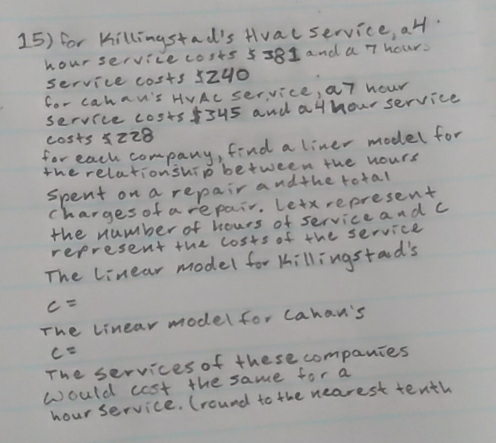 15) for Killingstad's Hvac service, a 4
hour service costs $381 and a 7 hour
service costs $240
for cahan's HVAC service, a 7 hour
service costs $345 and a 4 hour service
costs $228
for each company, find a liner model for
the relationship between the hours
spent on a repair and the total
charges of a repair. Let x represent
the number of hours of service and c
represent the costs of the service
The Linear model for Killingstad's
c =
The Linear model for cahan's
c =
The services of these companies
would cost the same for a
hour service. (round to the nearest tenth